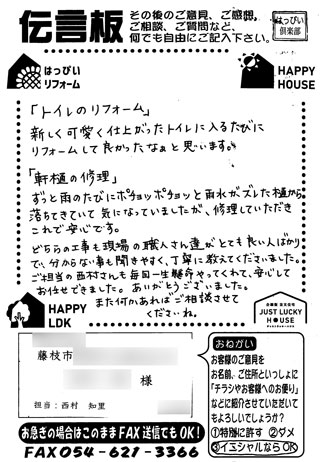 伝言板
その後のご意見、ご感想、
ご相談、ご質問など、
何でも自由にご記入下さい。
はっぴい
倶楽部
はっぴい
リフォーム
HAPPY
HOUSE
「トイレのリフォーム」
新しく可愛く仕上がったトイレに入るたびに
リフォームして良かったなぁと思います。
「軒樋の修理」
ずっと雨のたびにポチョッポチョッと雨水がズレた樋から
落ちてきていて気になっていましたが、修理していただき
これで安心です。
どちらの工事も現場の職人さん達がとても良い人ばかり
で、分からない事も聞きやすく、丁寧に教えてくださいました。
ご担当の西村さんも毎回一生懸命やってくれて、安心して
お任せできました。ありがとうございました。
また何かあればご相談させて
くださいね。
HAPPY
LDK
JUST LUCKY
HOUSE
藤枝市
様
担当：西村　知里
おねがい
お客様のご意見を
お名前、ご住所といっしょに
「チラシやお客様へのお便り」
などに紹介させていただいて
もよろしいでしょうか？
①特別に許す ②ダメ
③イニシャルならOK
お急ぎの場合はこのままFAX送信でもOK!
FAX054-621-3366